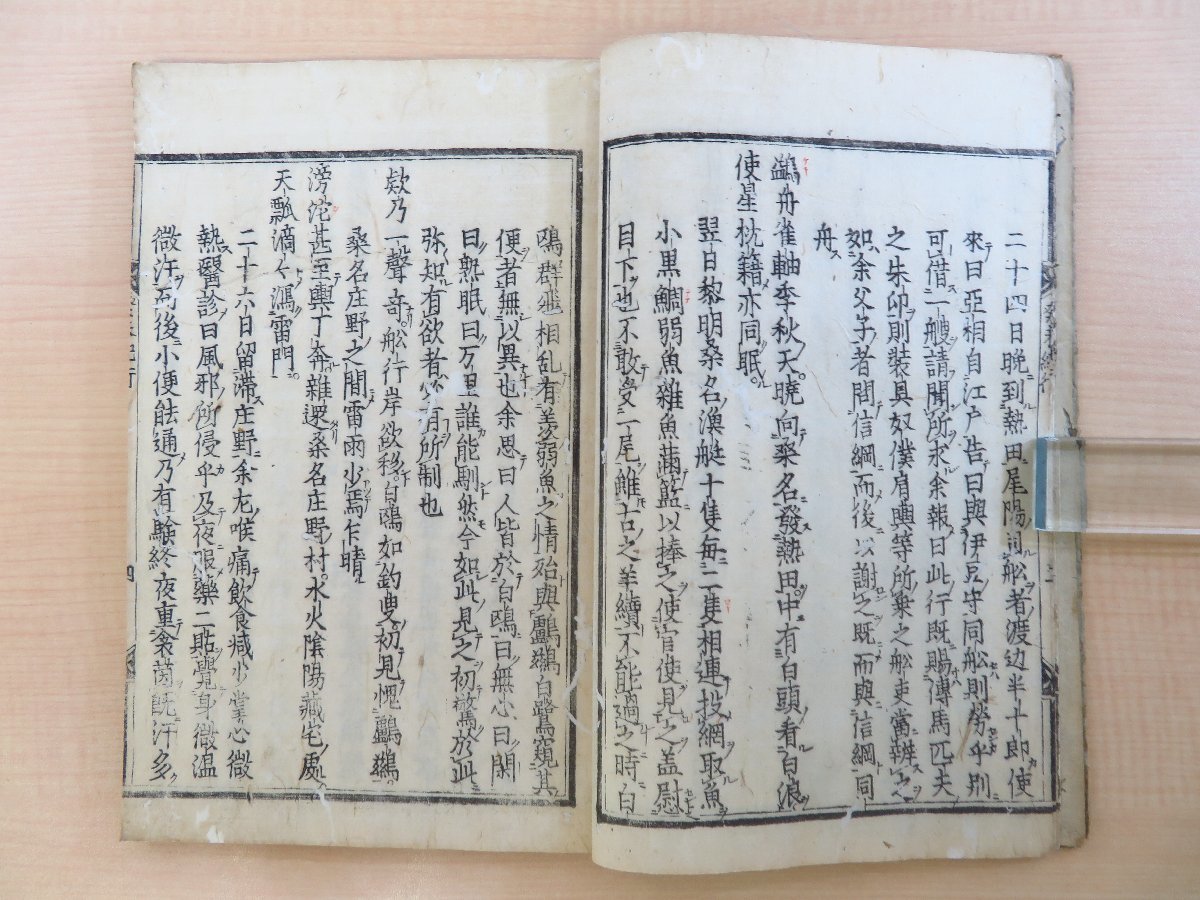 二十四日晩到熱田尾陽司舩者渡辺半十郎使
來曰亞相自江户告曰與伊豆守同舩則勞乎別
可借一艘請聞所求余報曰此行既賜傳馬匹夫
之朱印則裝具奴僕肩輿等所乗之舩吏當辨之
如余父子者間信綱而後以謝之既而與信綱同
舟
鷁舟雀軸季秋天曉向桒名發熱田中有白頭看白浪
使星枕籍亦同眠
翌日黎明桒名漁艇十隻每二隻相連投網取魚
小黒鯛弱魚雜魚滿籃以捧之使官使見之盖慰
目下也不敢受一尾雖古之羊續不能過之時白
鴎群飛相乱有羨弱魚之情殆與鸕鷀白鷺窺其
便者無以異也余思曰人皆於白鴎曰無心曰閑
曰熟眠曰万里誰能馴然今如此見之初驚於此
弥知有欲者必有所制也
欸乃一聲奇舩行岸欲移白鴎如釣叟初見愧鸕鷀
桑名庄野之間雷雨少焉乍晴
滂沱甚至輿丁奔雜遝桑名庄野村水火陰陽藏宅處
天瓢滴々瀉雷門
二十六日留滞庄野余左喉痛飲食减少掌心微
熱醫診曰風邪所侵乎及夜服藥二貼覺身微温
微汗為後小便能通乃有験終夜重衾茵既汗多
四